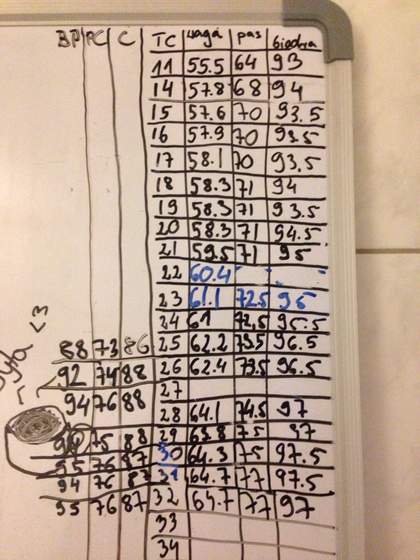 BP PC C TC waga pas biodra
11 55.5 64 93
14 57.8 68 94
15 57.6 70 93.5
16 57.9 70 93.5
17 58.1 70 93.5
18 58.3 71 94
19 58.3 71 93.5
20 58.3 71 94.5
21 59.5 71 95
22 60.4 - -
23 61.1 72.5 95
24 61 72,5 95.5
88 73 86 25 62.2 73.5 96.5
92 74 88 26 62.4 73.5 96.5
94 76 88 27
28 64.1 74.5 97
75 88 29 63.8 75 97
95 76 87 30 64.3 75 97.5
94 76 87 31 64.7 77 97.5
95 76 87 32 64.7 77 97
33
34
<3